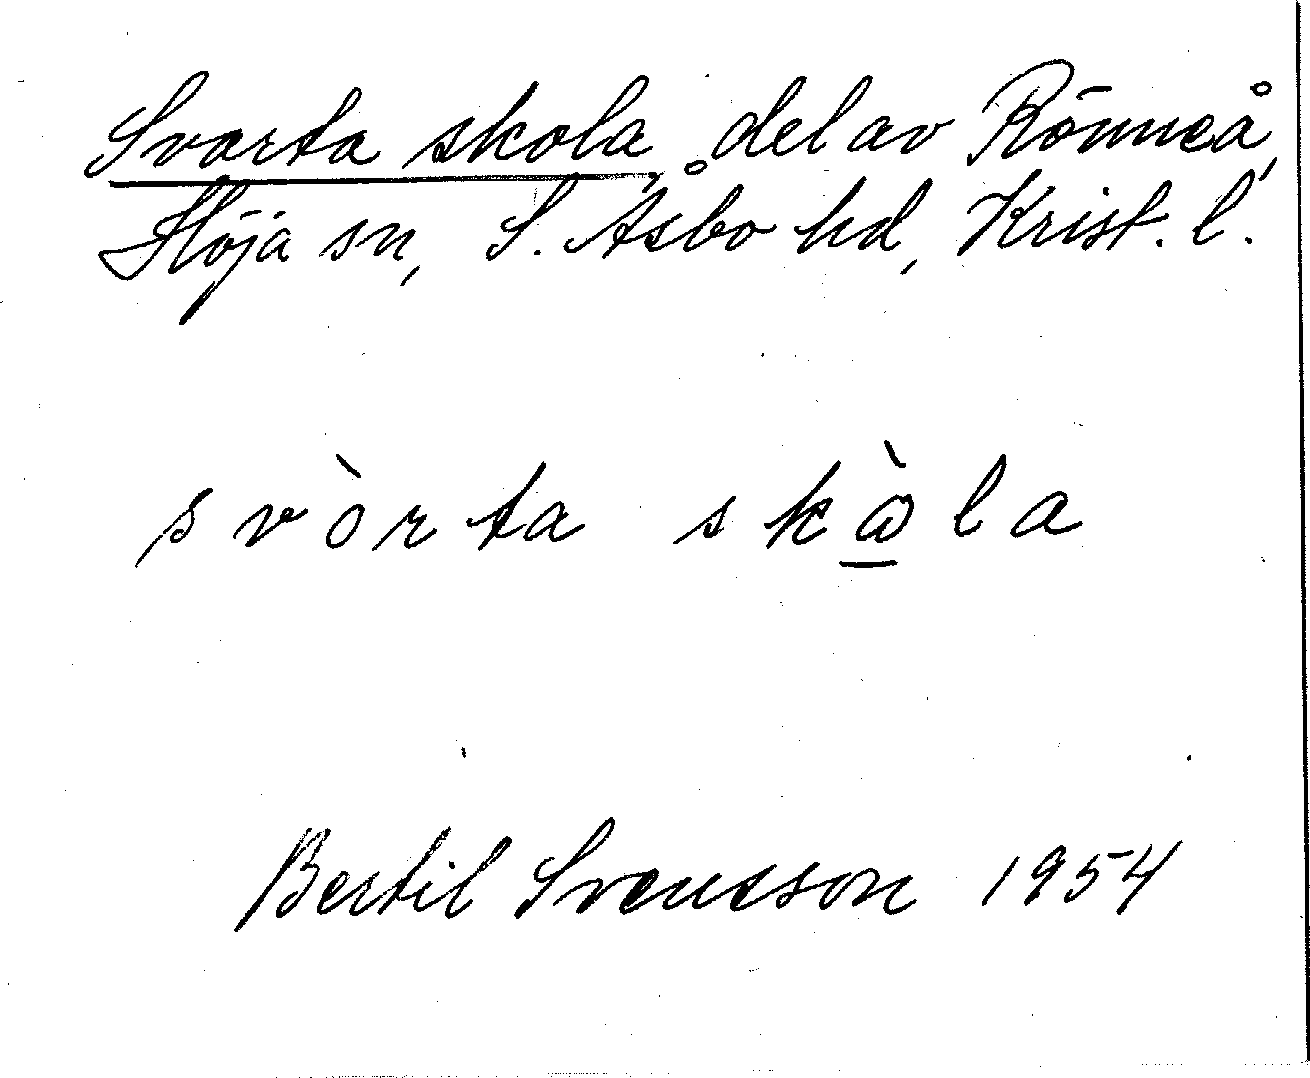 Svarta skola, del av Rönneå,
Höja sn, S. Åsbo hd, Krist. l.
svòrta skò̱la
Bertil Svensson 1954